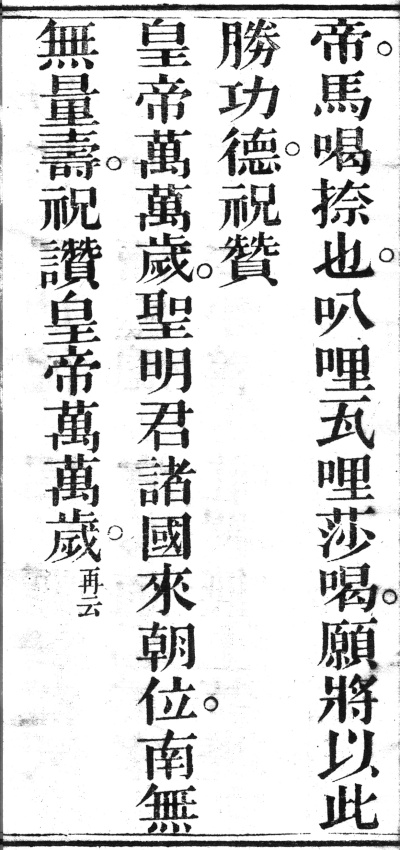 。帝馬喝捺也。叭哩瓦哩莎喝。願將以此
勝功德。祝贊
皇帝萬萬歲。聖明君諸國來朝位。南無
無量壽。祝讚皇帝萬萬歲。再云